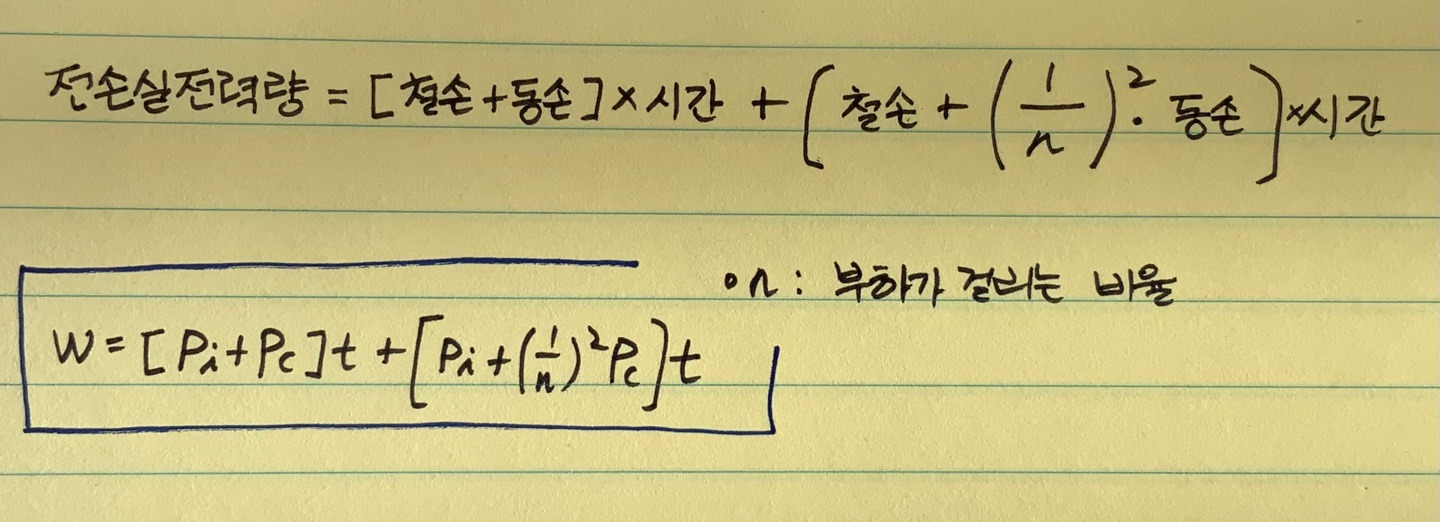 전손실전력량 = [철손+동손]×시간 + [철손 + (1/n)²· 동손]×시간
• n : 부하가 걸리는 비율
W = [Pi+Pc]t + [Pi+(1/n)²Pc]t